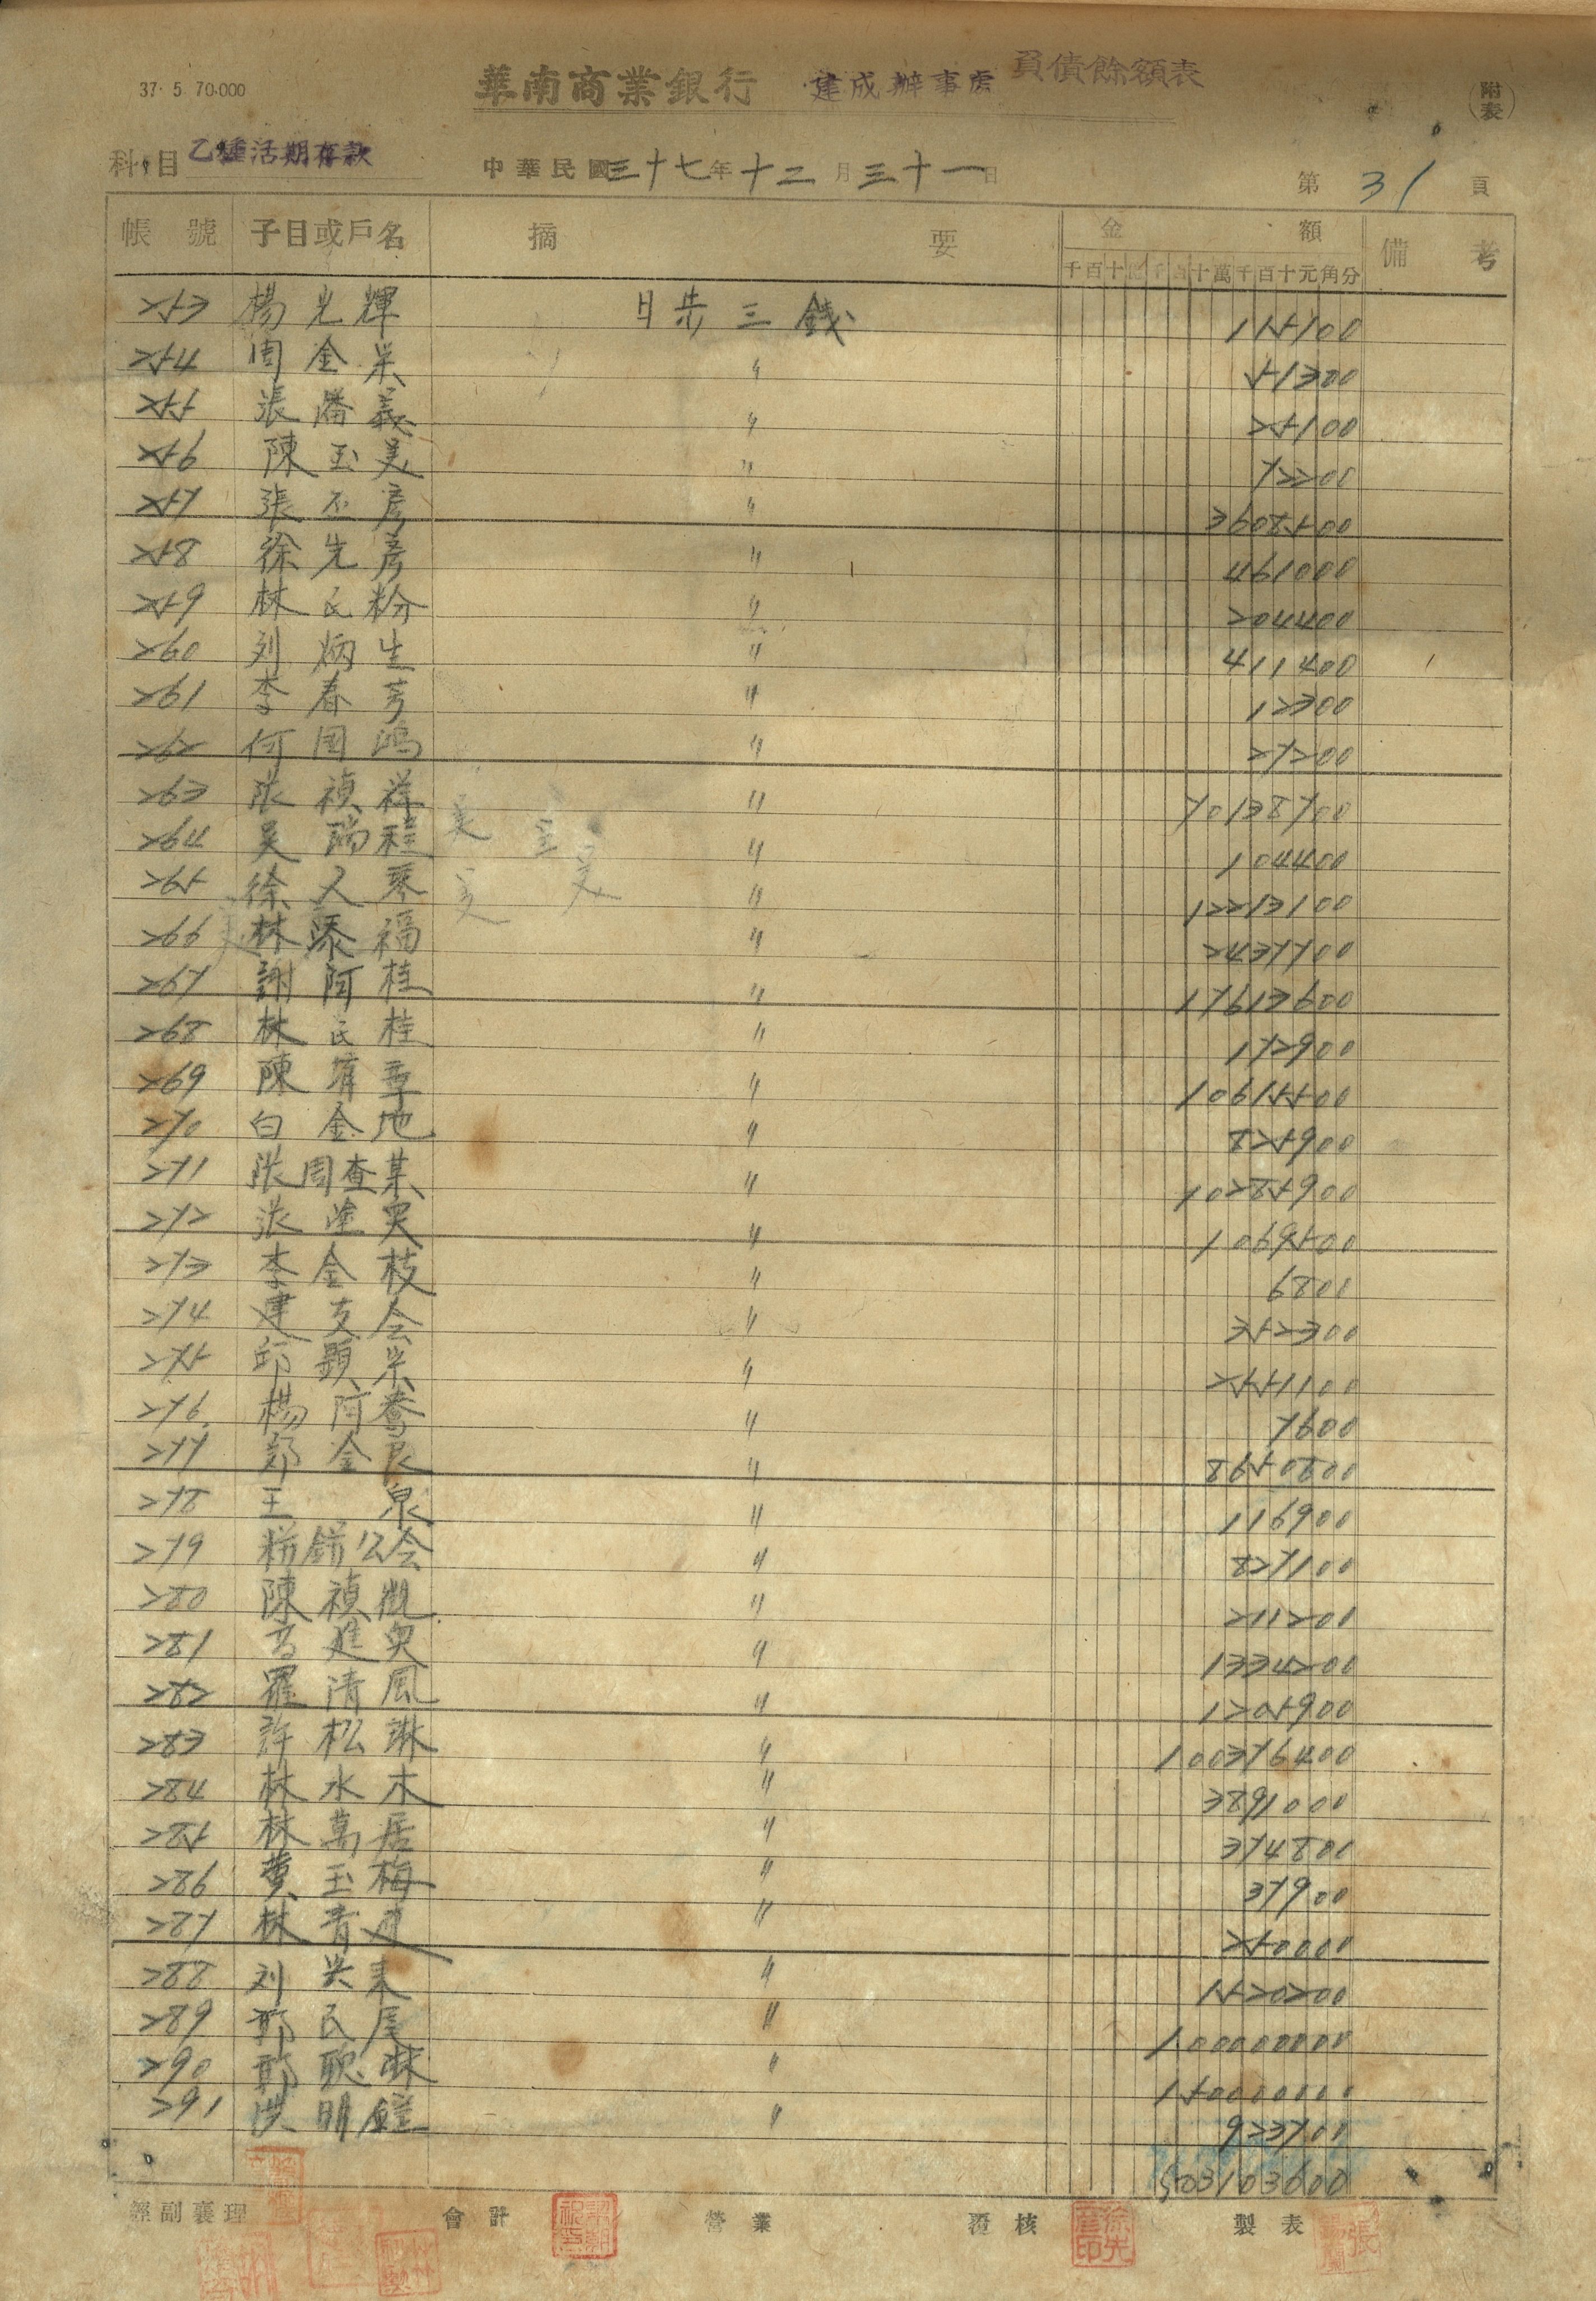 37. 5 70.000
華南商業銀行 建成辦事處 負債餘額表 (附表)
科目 乙種活期存款 中華民國三十七年十二月三十一日 第31頁
帳號 子目或戶名 摘要 金額 備考
千百十億千百十萬千百十元角分
253 楊光輝 日步三錢 115100
254 周金荣 〃 51300
255 張潘義 〃 25100
256 陳玉美 〃 72200
257 張丕彥 〃 3608500
258 徐先彥 〃 461000
259 林氏粉 〃 204400
260 刘炳生 〃 411400
261 李春芳 〃 12300
262 何国鴻 〃 27200
263 張禎祥 〃 70138700
264 吴瑞桂 〃 104400
265 徐人琴 〃 12213100
266 林添福 〃 2437700
267 謝阿桂 〃 17613600
268 林氏桂 〃 172900
269 陳章 〃 10615500
270 白金地 〃 825900
271 張周查某 〃 10285900
272 張塗 〃 1069500
273 李金枝 〃 6801
274 建友会 〃 352300
275 邱顕栄 〃 2551100
276 楊阿喬 〃 7600
277 鄭金良 〃 8650800
278 王泉 〃 116900
279 餅公会 〃 827100
280 陳禎 〃 211201
281 高進 〃 1334200
282 羅清風 〃 1205900
283 許松琳 〃 100376400
284 林水木 〃 3891000
285 林萬居 〃 374801
286 黄玉梅 〃 37900
287 林青 〃 250000
288 刘米 〃 1520200
289 郭氏尾 〃 100000000
290 郭聰琳 〃 150000000
291 洪明鏗 〃 923700
503103600
經副襄理 會計 營業 覆核 製表